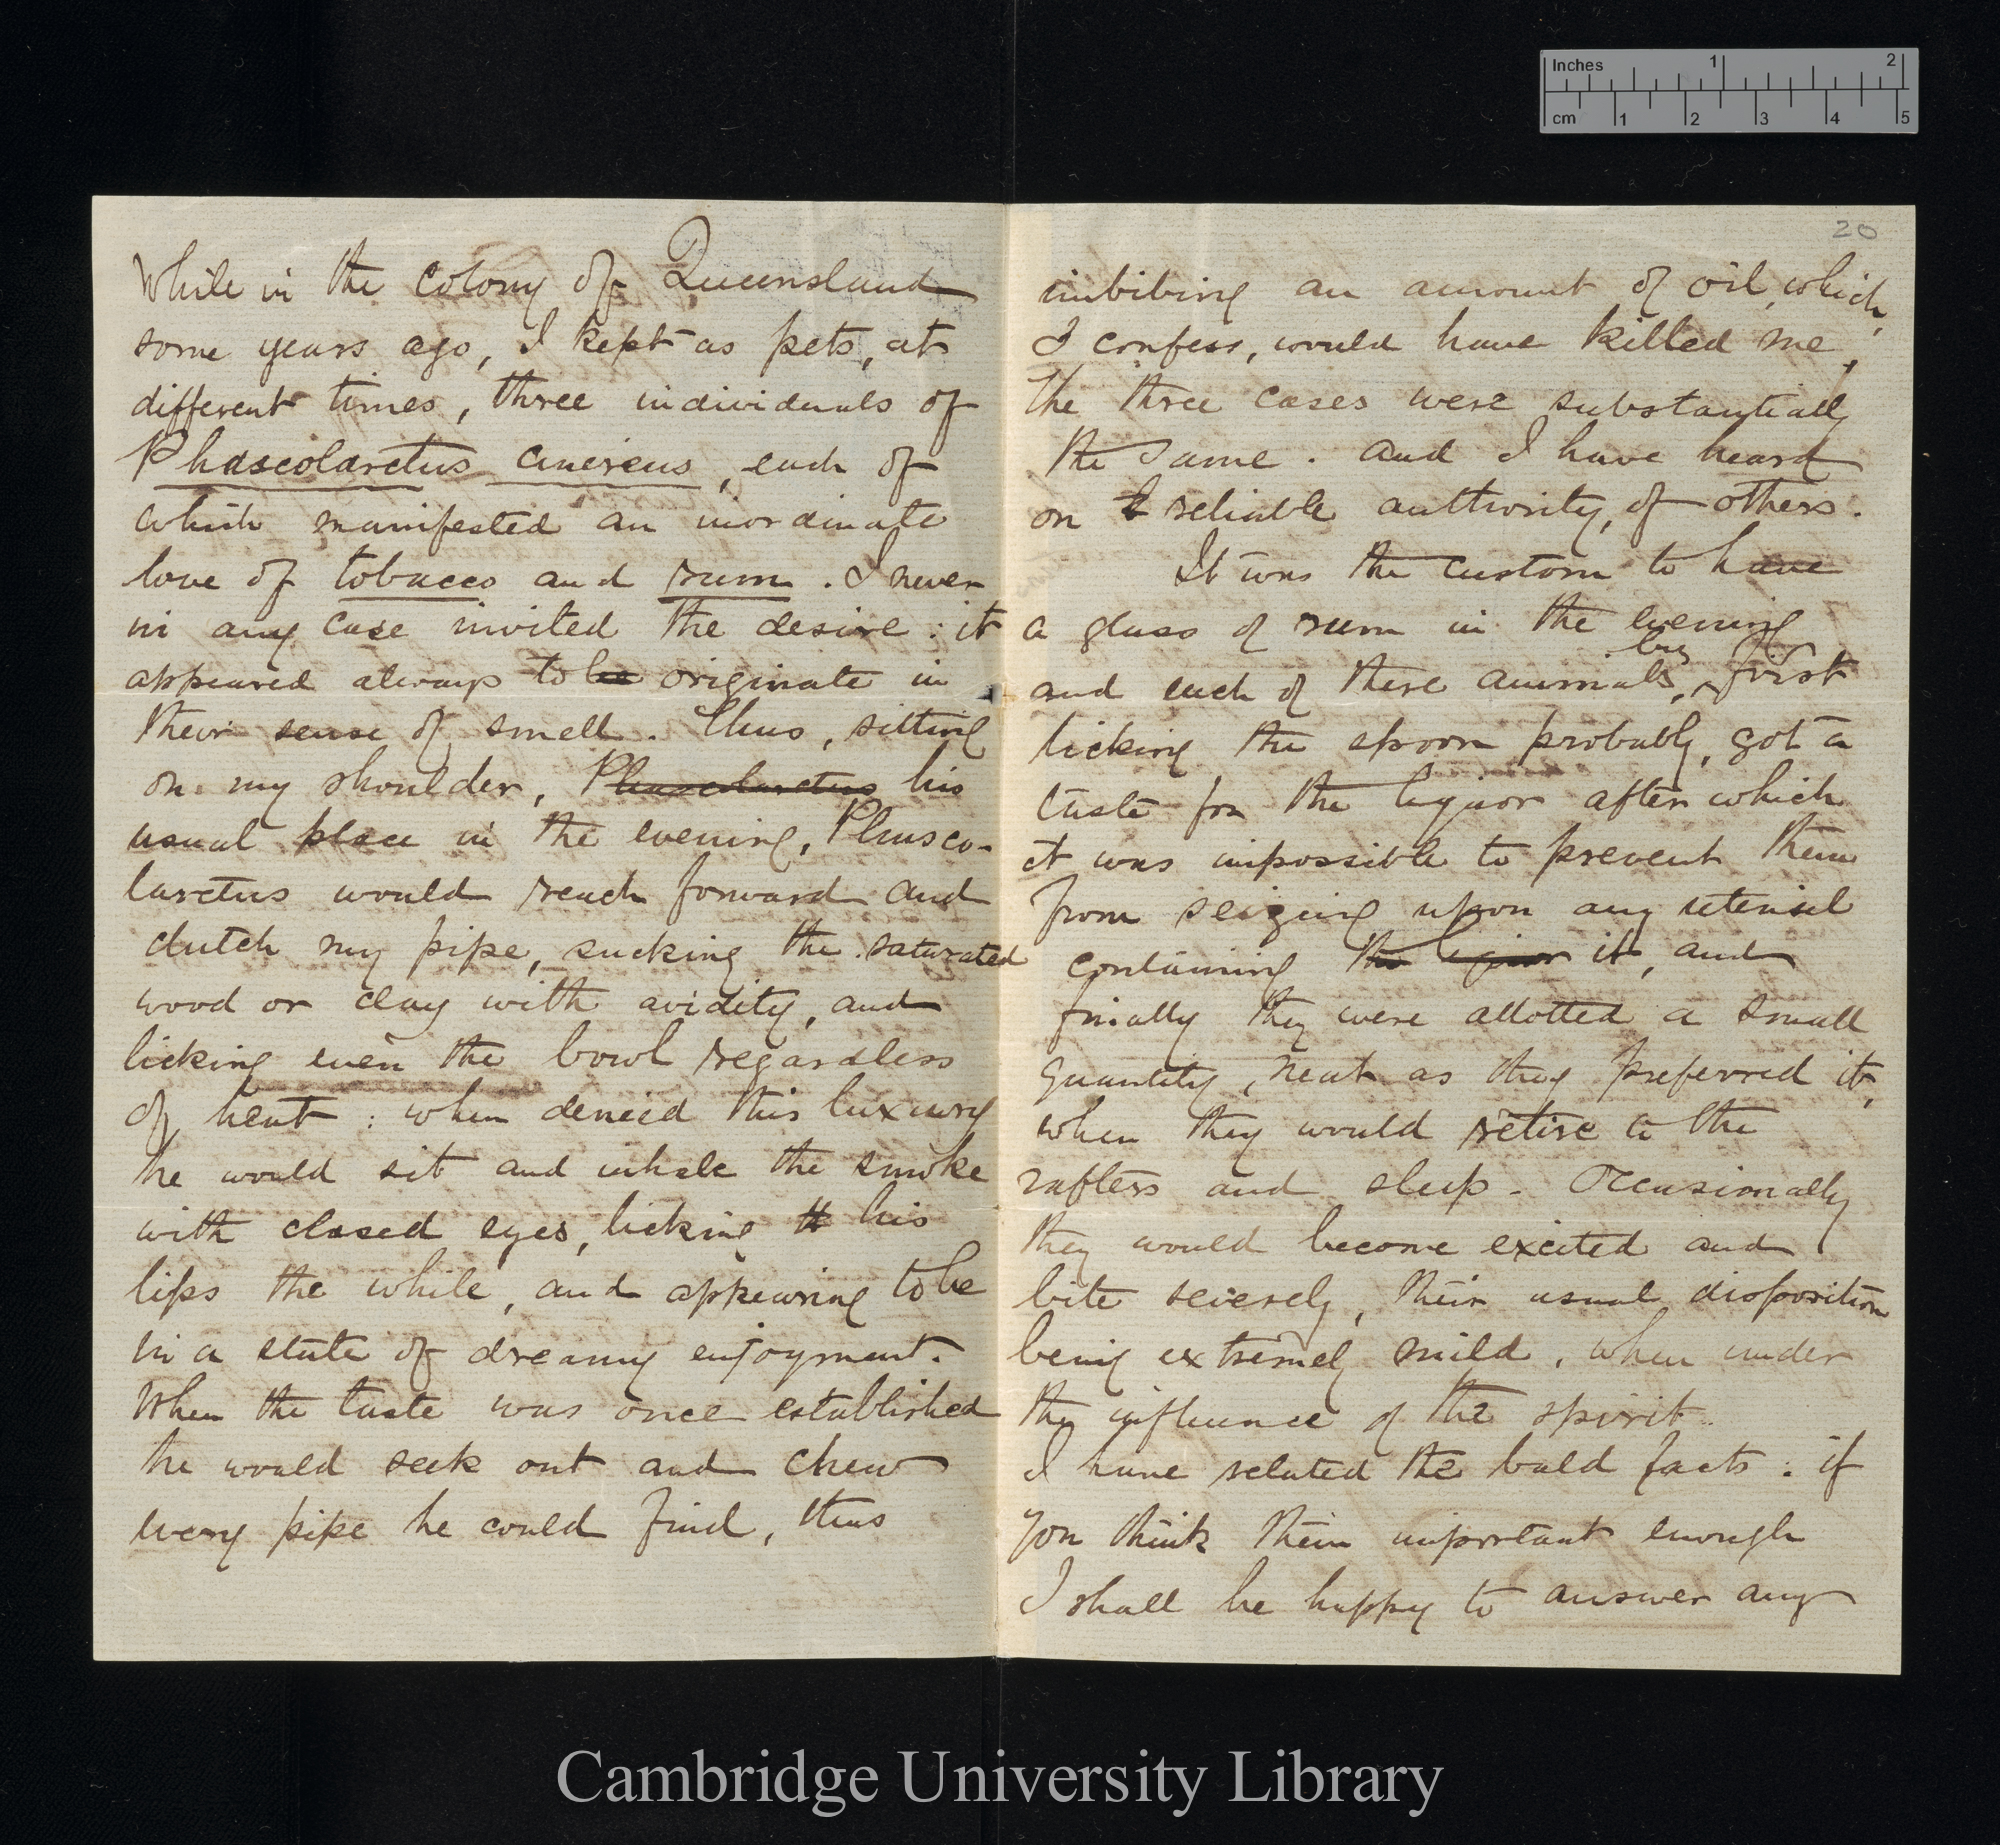 Inches 1 2
cm 1 2 3 4 5
While in the colony of Queensland
some years ago, I kept as pets, at
different times, three individuals of
Phascolarctus cinereus, each of
which manifested an inordinate
love of tobacco and rum. I never
in any case invited the desire: it
appeared always to be originate in
their sense of smell. Thus, sitting
on my shoulder, Phascolarctus his
usual place in the evening, Phasco-
larctus would reach forward and
clutch my pipe, sucking the saturated
wood or clay with avidity, and
licking even the bowl regardless
of heat: when denied this luxury
he would sit and inhale the smoke
with closed eyes, licking th his
lips the while, and appearing to be
in a state of dreamy enjoyment.
When the taste was once established
he would seek out and chew
every pipe he could find, thus
20
imbibing an amount of oil, which,
I confess, would have killed me.
The three cases were substantially
the same. And I have heard
on reliable authority, of others.
It was the custom to have
a glass of rum in the evening
and each of these animals, by first
licking the spoon probably, got a
taste for the liquor after which
it was impossible to prevent them
from seizing upon any utensil
containing the liquor it, and
finally they were allotted a small
quantity, neat as they preferred it,
when they would retire to the
rafters and sleep. Occasionally
they would become excited and
bite severely, their usual disposition
being extremely mild, when under
the influence of the spirit.
I have related the bald facts: if
you think them important enough
I shall be happy to answer any
Cambridge University Library